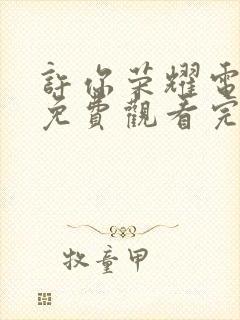 許你荣耀電
免費觀看完
牧童甲